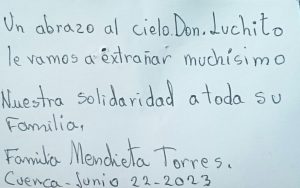 Un abrazo al cielo.Don.Luchito
le vamos a éxtrañar muchísimo
Nuestra solidaridad a toda su
Familia,
Familia Mendieta Torres.
Cuenca-Junio 22-2023